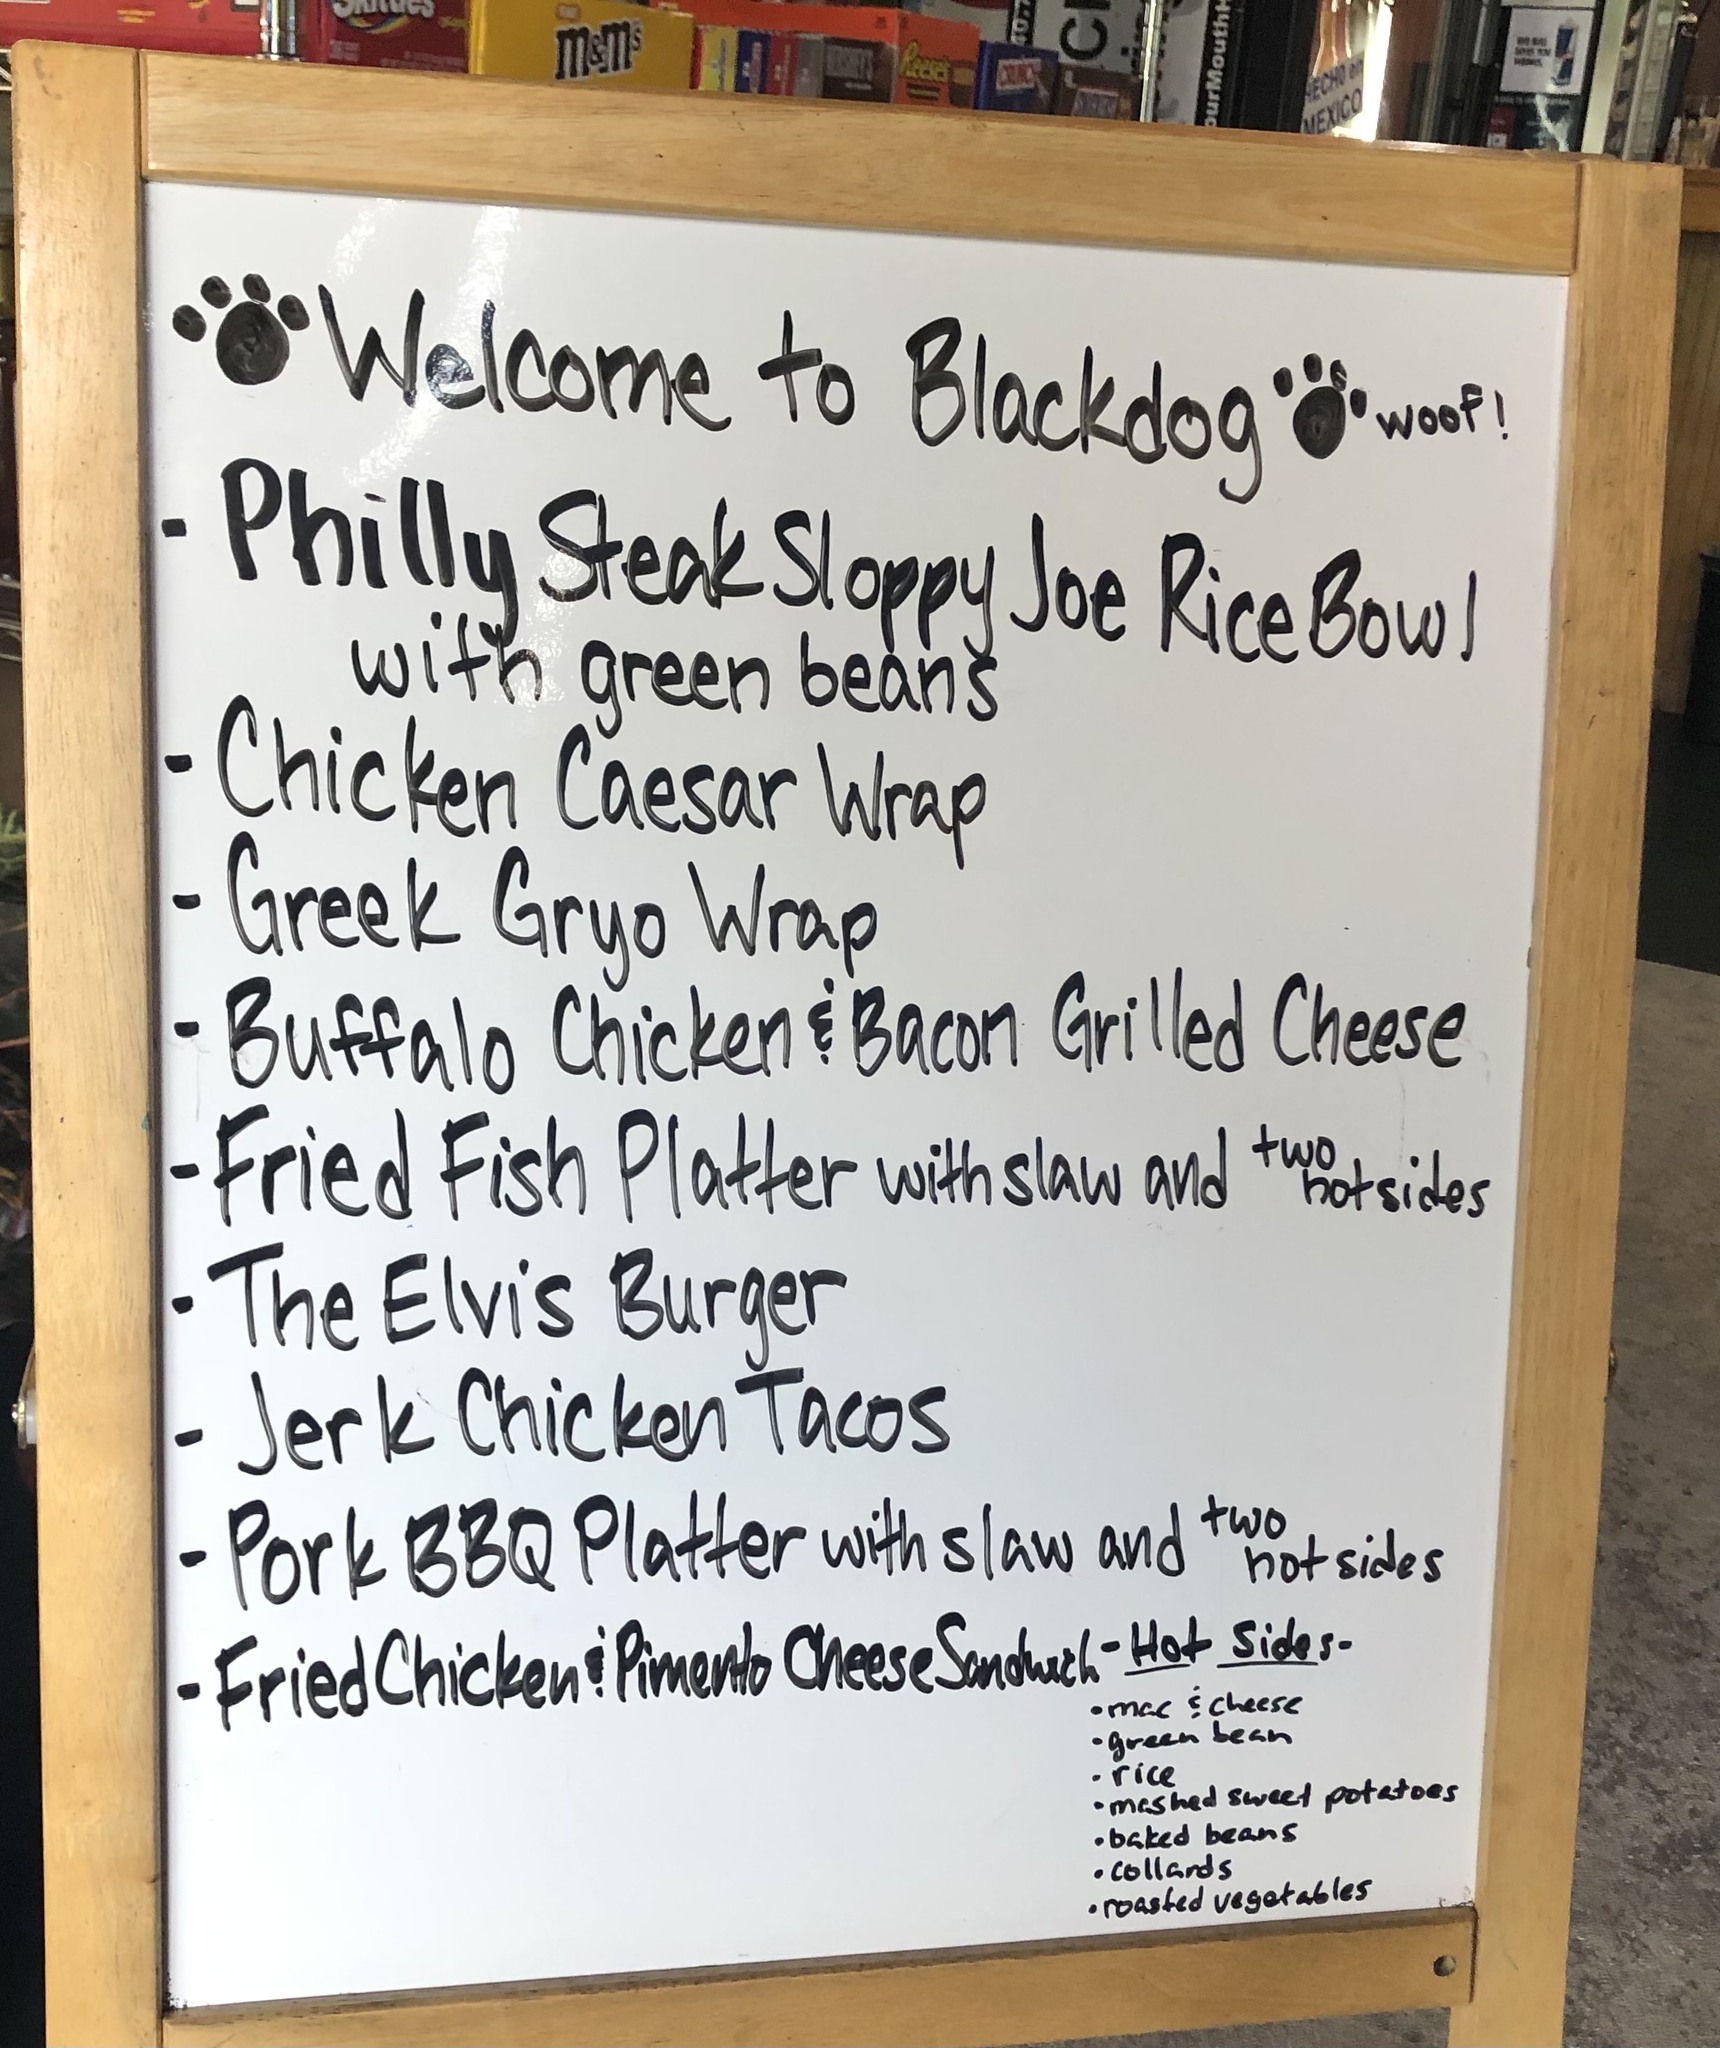 Skittles
m&m's
HERSHEY'S
Reese's
CRUNCH
ourMouthH
HECHO en
MEXICO
Welcome to Blackdog woof!
- Philly Steak Sloppy Joe Rice Bowl
with green beans
- Chicken Caesar Wrap
- Greek Gryo Wrap
- Buffalo Chicken & Bacon Grilled Cheese
- Fried Fish Platter with slaw and two
hot sides
- The Elvis Burger
- Jerk Chicken Tacos
- Pork BBQ Platter with slaw and two
hot sides
- Fried Chicken & Pimento Cheese Sandwich
- Hot Sides -
• mac & cheese
• green bean
• rice
• mashed sweet potatoes
• baked beans
• collards
• roasted vegetables